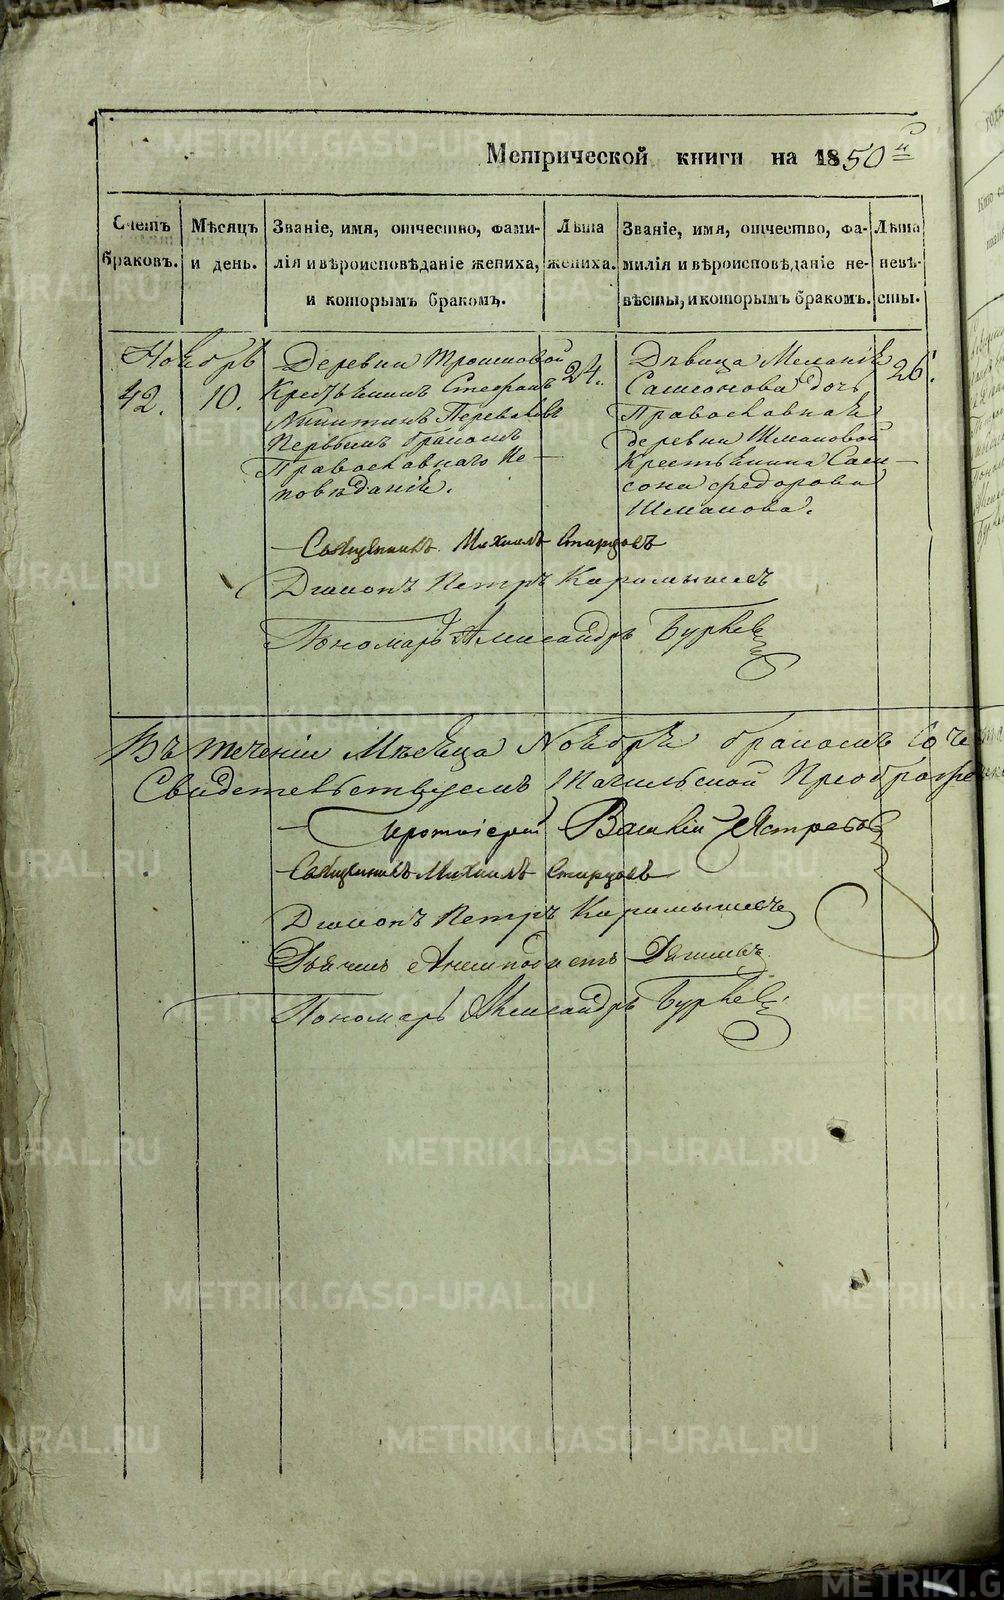 Метрической книги на 1850й
Счетъ браковъ.
Мѣсяцъ и день.
Званіе, имя, отчество, фами-
лія и вѣроисповѣданіе жениха,
и которымъ бракомъ.
Лѣта жениха.
Званіе, имя, отчество, фа-
милія и вѣроисповѣданіе не-
вѣсты, и которымъ бракомъ.
Лѣта невѣ-
сты.
Ноябрь
42.
10.
Деревни
Крестьянинъ Стефанъ
Никитинъ
Первымъ бракомъ
Православнаго Ис-
повѣданія.
24.
Дѣвица Меланія
Самсонова дочь
Православная
деревни Шмаковой
Крестьянина Сам-
сона Федорова
Шмакова.
26.
Священникъ Михаилъ Стирцовъ
Діаконъ Петръ Карамышевъ
Пономарь Александръ
Въ теченіи Мѣсяца Ноября бракомъ Соче
Свидетельствуемъ Тагильской
Протоіерей Ястребов
Священникъ Михаилъ Стирцовъ
Діаконъ Петръ Карамышевъ
Дьячекъ
Пономарь Александръ
METRIKI.GASO-URAL.RU